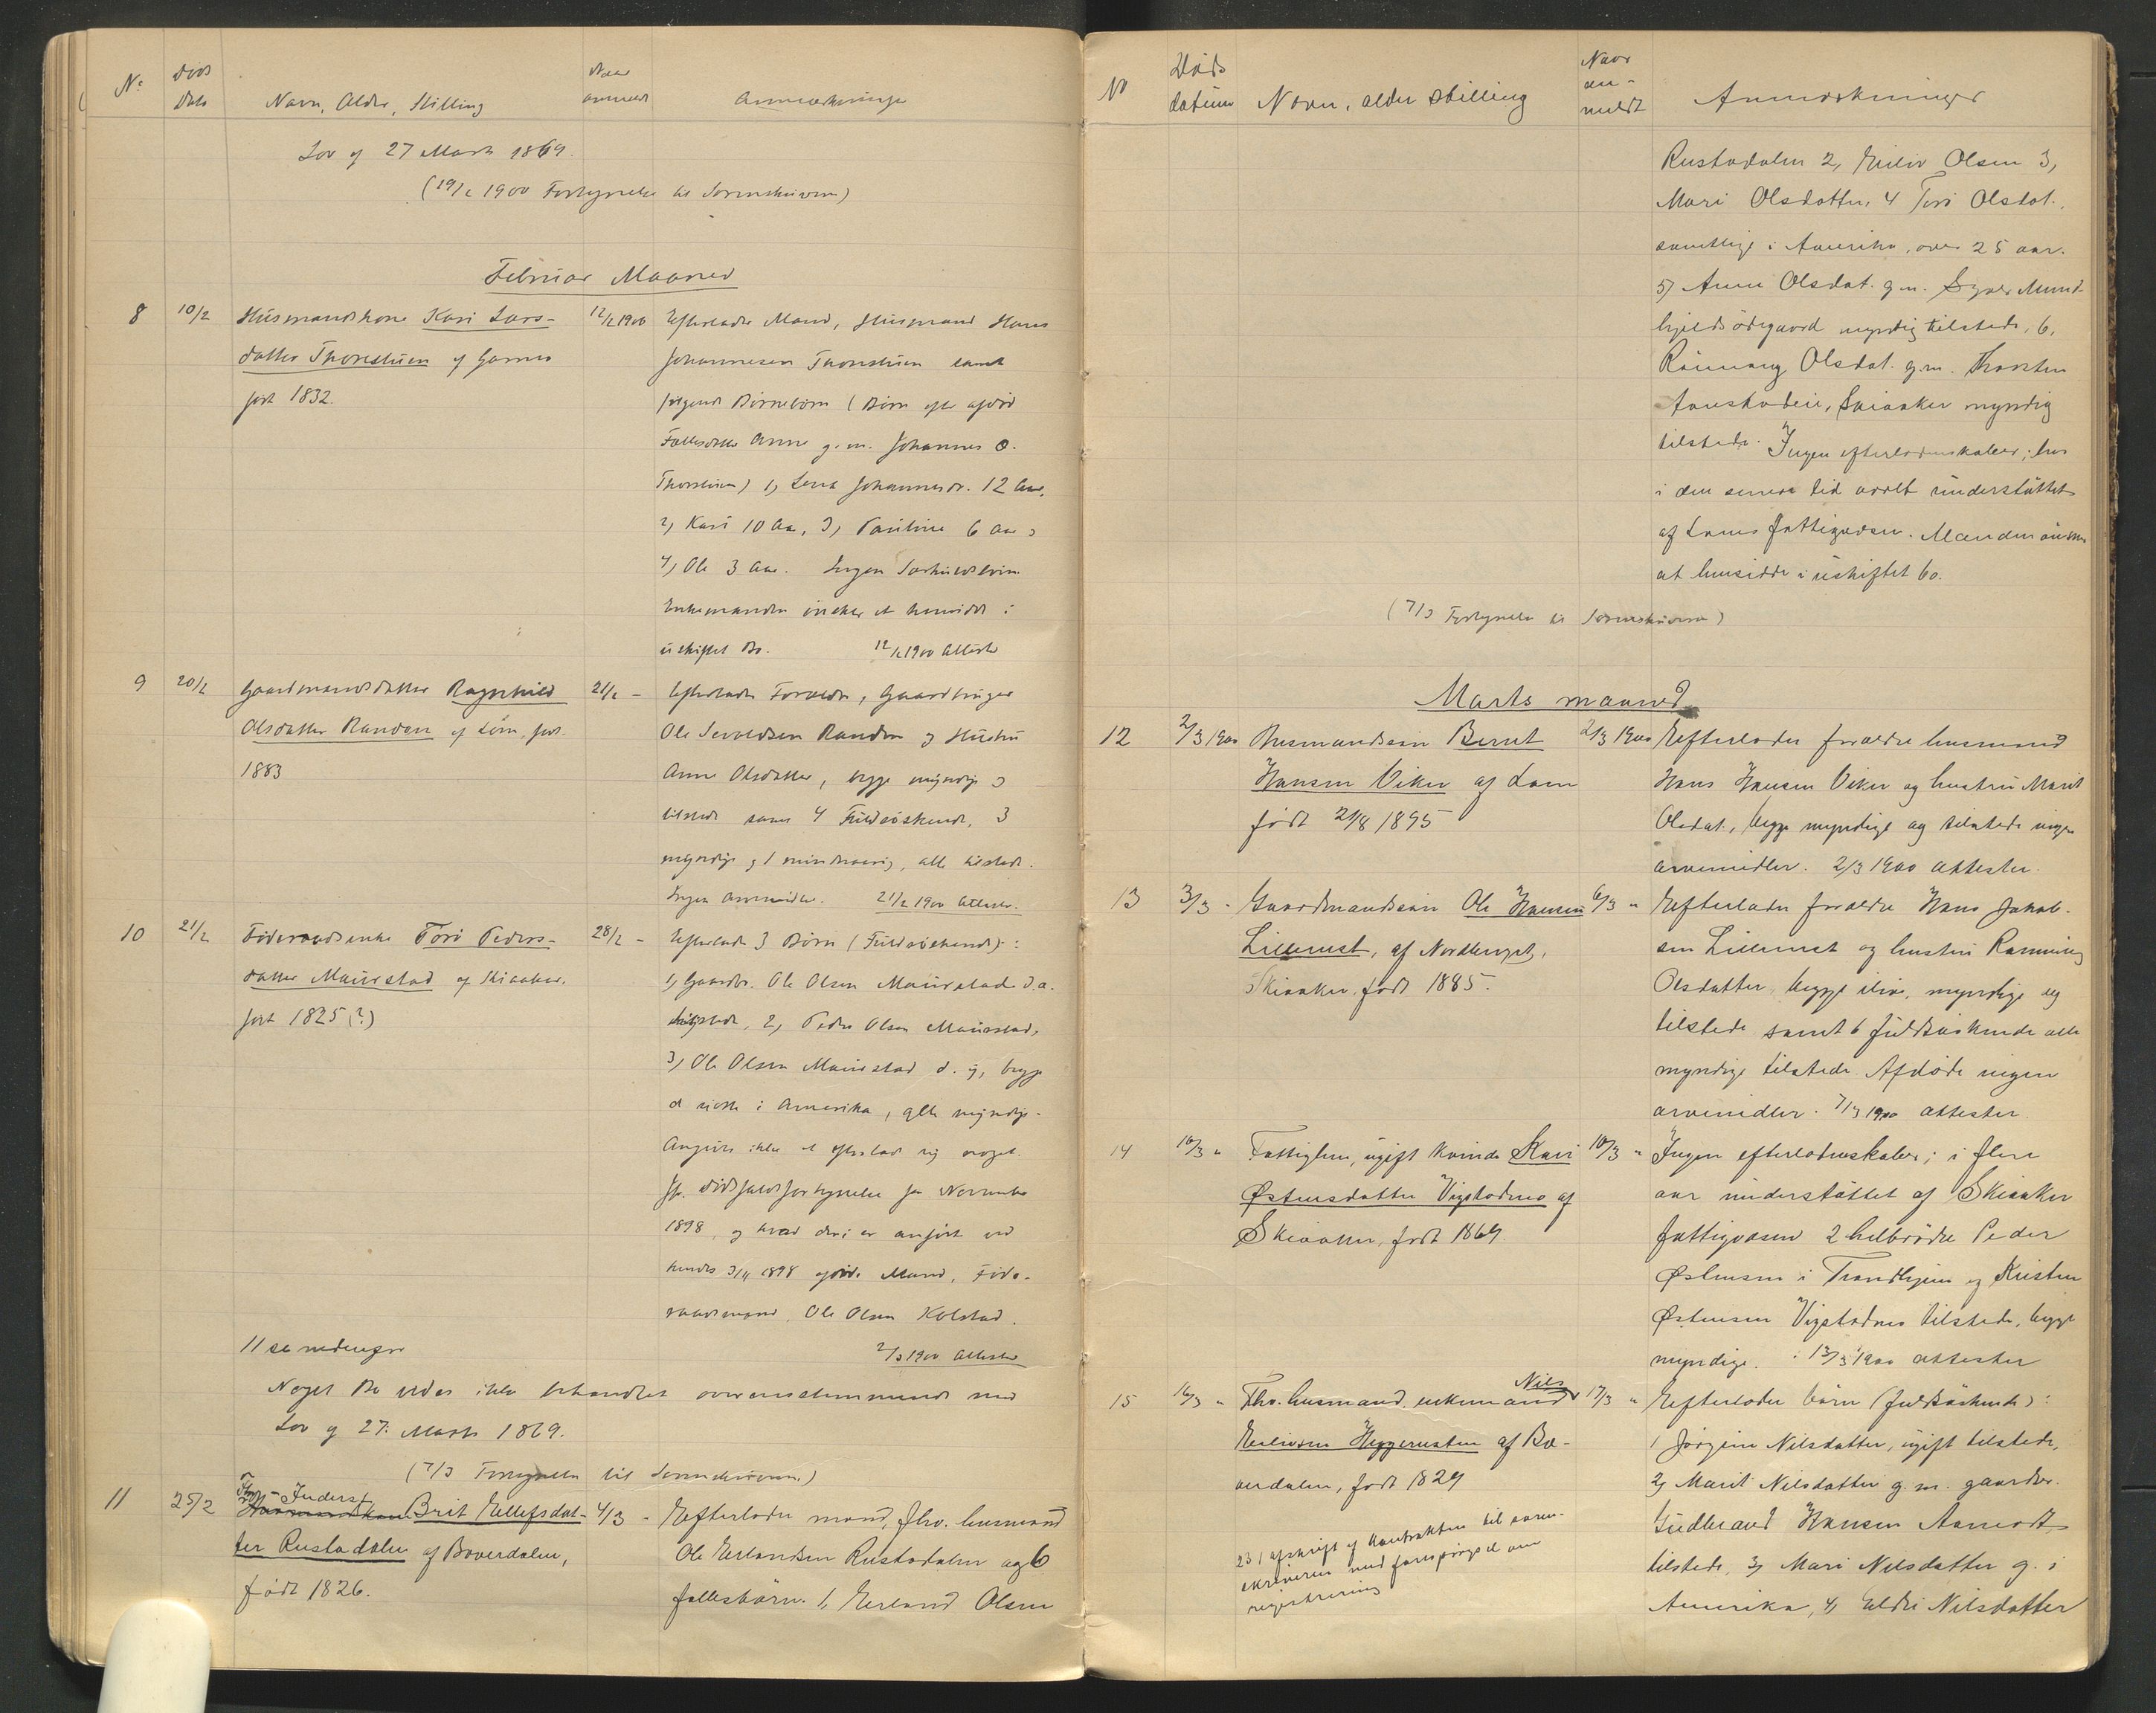 No
Døds
Dato
Navn, Alder, Stilling
Naar
anmeldt
Anmærkninger
Lov af 27 Marts 1869.
(19/2 1900 Fortegnelse til Sorenskriveren)
Februar Maaned
8
10/2
Husmandskone Kari Lars-
datter Thorestuen af Garmo
født 1832.
12/2 1900
Efterlader Mand, Husmand Hans
Johannesen Thorestuen samt
følgende Børnebørn (Børn efter afdød
Fællesdatter Anne g. m. Johannes O.
Thorestuen) 1, Johannesdr. 12 Aar,
2, Kari 10 Aar, 3, Pauline 6 Aar og
4, Ole 3 Aar. Ingen Særkuldsbørn.
Enkemanden ønsker at hensidde i
uskiftet Bo. 12/2 1900 Attester
9
20/2
Gaardmandsdatter Ragnhild
Olsdatter Randen af Lom, født
1883
21/2 -
Efterlader Forældre, Gaardbruger
Ole Randen og Hustru
Anne Olsdatter, begge myndige og
tilstede samt 4 Fuldsøskende, 3
myndige og 1 mindreaarig, alle tilstede.
Ingen Arvemidler. 21/2 1900 Attester.
10
21/2
Føderaadsenke Toro Peders-
datter Maurstad af Skiaaker,
født 1825 (?)
28/2 -
Efterlader 3 Børn (Fuldsøskende):
1, Gaardbr. Ole Olsen Maurstad d.æ.
tilstede, 2, Peder Olsen Maurstad,
3, Ole Olsen Maurstad d. y, begge
de sidste i Amerika, alle myndige.
Angives ikke at efterlade sig noget.
Jfr. Dødsfaldsfortegnelse for November
1898, og hvad deri er anført ved
hendes 3/11 1898 afdøde Mand, Føde-
raadsmand Ole Olsen Kolstad.
2/3 1900 Attester
11 se nedenfor
Noget Bo vides ikke behandlet overensstemmende med
Lov af 27. Marts 1869.
(7/3 Fortegnelse til Sorenskriveren)
11
25/2
Inderst
Brit Ellefsdat-
ter Rustadalen af Bøverdalen,
født 1826.
4/3 -
Efterlader mand, fhv. husmand
Ole Erlandsen Rustadalen og 6
fællesbørn. 1, Erland Olsen
No
Døds
datum
Navn, alder stilling
Naar
an-
meldt
Anmærkninger
Rustadalen 2, Eiliv Olsen 3,
Mari Olsdatter, 4 Toro Olsdat.,
samtlige i Amerika, over 25 aar.
5) Anne Olsdat. g.m. Syver Mund-
hjeldsødegaard myndig tilstede, 6,
Rønnaug Olsdat. g.m. Thorsten
Skiaaker myndig
tilstede. Ingen efterladenskaber; har
i den senere tid været understøttet
af Loms fattigvæsen. Manden ønsker
at hensidde i uskiftet bo.
(7/3 Fortegnelse til Sorenskriveren)
Marts maaned
12
2/3 1900
Husmandssøn Bernt
Hansen Viker af Lom
født 21/8 1895
2/3 1900
Efterlader forældre husmand
Hans Hansen Viker og hustru Marit
Olsdat., begge myndige og tilstede ingen
arvemidler. 2/3 1900 attester.
13
3/3 -
Gaardmandssøn Ole Hansen
Lillerust, af Nordberget,
Skiaaker, født 1885.
6/3 "
Efterlader forældre Hans Jakob-
sen Lillerust og hustru Rønnaug
Olsdatter begge ilive, myndige og
tilstede samt 6 fuldsøskende alle
myndige tilstede. Afdøde ingen
arvemidler. 7/3 1900 attester.
14
10/3 "
Fattiglem, ugift kvinde Kari
Østensdatter Vigstadmo af
Skiaaker, født 1869.
10/3 "
Ingen efterladenskaber; i flere
aar understøttet af Skiaaker
fattigvæsen 2 helbrødre Peder
Østensen i Trondhjem og Kristen
Østensen Vigstadmo tilstede, begge
myndige. 13/3 1900 attester
15
16/3 "
Nils
Fhv. husmand enkemand
Eilivsen Heggerusten af Bø-
verdalen, født 1829
23/ afskrift af kontrakten til soren-
skriveren med forespørgsel om
registrering
17/3 "
Efterlader børn (fuldsøskende):
1 Jørgine Nilsdatter, ugift tilstede,
2, Marit Nilsdatter g. m. gaardbr.
Gudbrand Hansen Aamodt
tilstede, 3, Mari Nilsdatter g. i
Amerika, 4, Eldri Nilsdatter